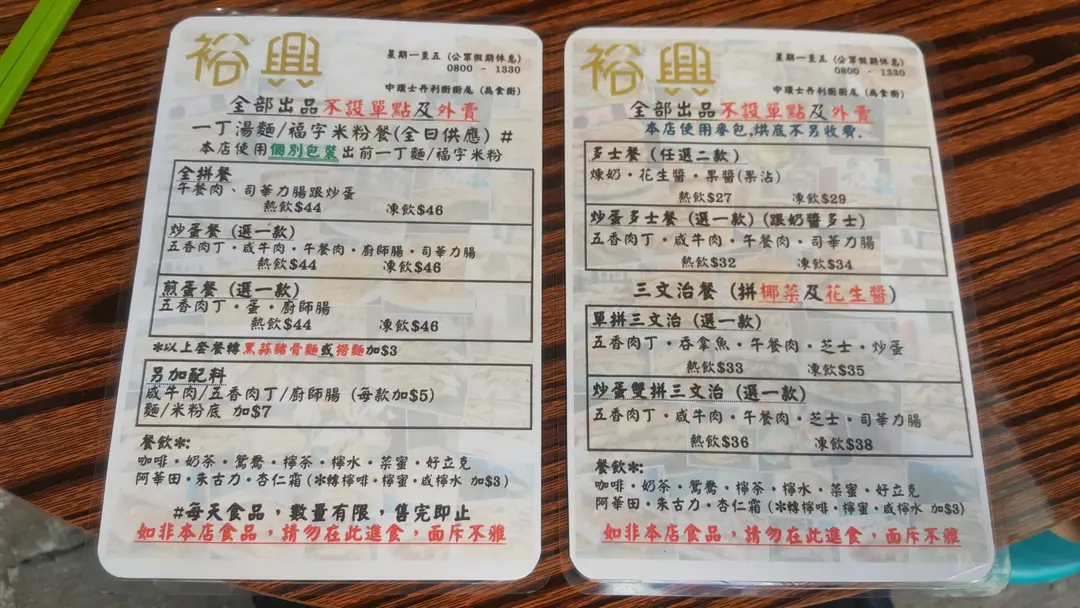 裕興
星期一至五 (公眾假期休息)
0800 - 1330
中環士丹利街街尾 (為食街)
全部出品不設單點及外賣
一丁湯麵/福字米粉餐(全日供應) #
本店使用個別包裝出前一丁麵/福字米粉
全拼餐
午餐肉、司華力腸跟炒蛋
熱飲$44 凍飲$46
炒蛋餐 (選一款)
五香肉丁・咸牛肉・午餐肉・廚師腸・司華力腸
熱飲$44 凍飲$46
煎蛋餐 (選一款)
五香肉丁・蛋・廚師腸
熱飲$44 凍飲$46
*以上套餐轉黑蒜豬骨麵或撈麵加$3
另加配料
咸牛肉/五香肉丁/廚師腸 (每款加$5)
麵/米粉底 加$7
餐飲*:
咖啡・奶茶・鴛鴦・檸茶・檸水・菜蜜・好立克
阿華田・朱古力・杏仁霜 (*轉檸啡・檸蜜・咸檸水 加$3)
#每天食品，數量有限，售完即止
如非本店食品，請勿在此進食，面斥不雅
裕興
星期一至五 (公眾假期休息)
0800 - 1330
中環士丹利街街尾 (為食街)
全部出品不設單點及外賣
本店使用麥包,烘底不另收費.
多士餐 (任選二款)
煉奶・花生醬・果醬(果沾)
熱飲$27 凍飲$29
炒蛋多士餐 (選一款) (跟奶醬多士)
五香肉丁・咸牛肉・午餐肉・司華力腸
熱飲$32 凍飲$34
三文治餐 (拼椰菜及花生醬)
單拼三文治 (選一款)
五香肉丁・吞拿魚・午餐肉・芝士・炒蛋
熱飲$33 凍飲$35
炒蛋雙拼三文治 (選一款)
五香肉丁・咸牛肉・午餐肉・芝士・司華力腸
熱飲$36 凍飲$38
餐飲*:
咖啡・奶茶・鴛鴦・檸茶・檸水・菜蜜・好立克
阿華田・朱古力・杏仁霜 (*轉檸啡・檸蜜・咸檸水 加$3)
如非本店食品，請勿在此進食，面斥不雅